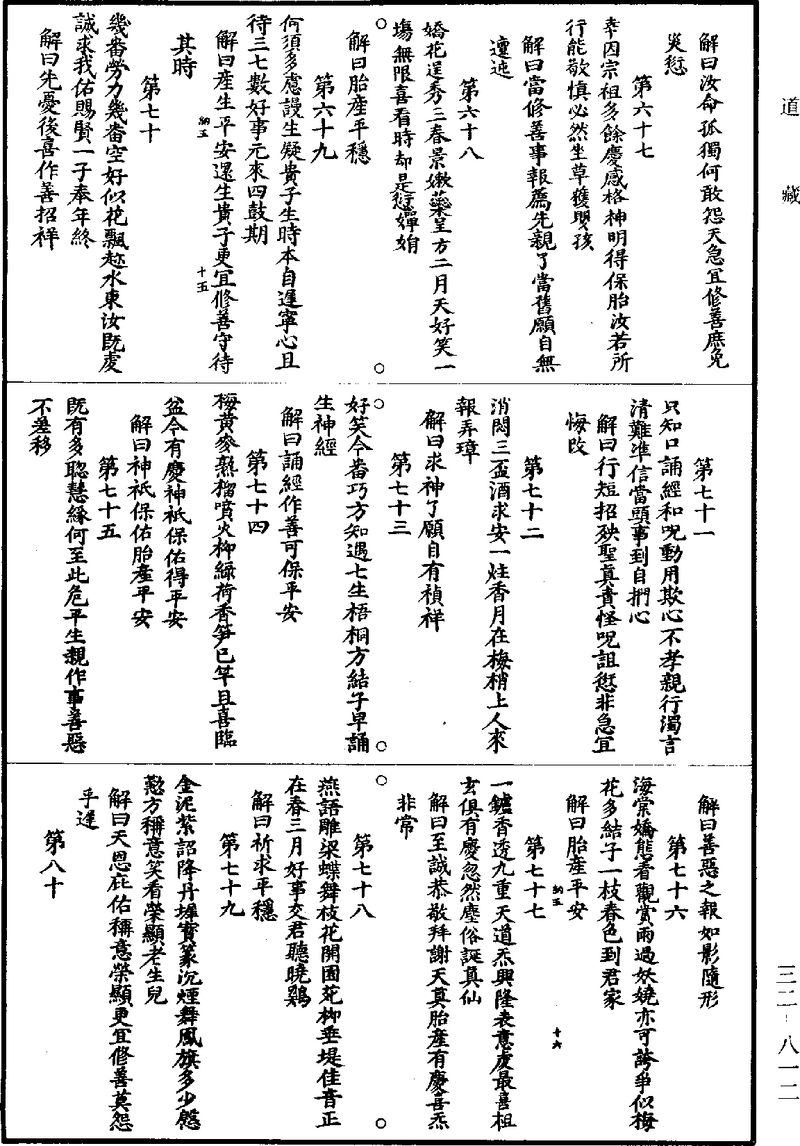 道藏
解曰汝命孤獨何敢怨天急宜修善庶免
災愆
第六十七
幸因宗祖多餘慶感格神明得保胎汝若所
行能敬慎必然坐草獲嬰孩
解曰當修善事報薦先親了當舊願自無
邅迍
第六十八
嬌花逞秀三春景嫩蘂呈方二月天好笑一
塲無限喜看時却是
第六十九
解曰胎產平穩
何須多慮謾生疑貴子生時本自遲寧心且
待三七數好事元來四鼓期
解曰產生平安還生貴子更宜修善守待
其時
第七十
幾畨勞力幾畨空好似花飄趂水東汝既虔
誠求我佑賜賢一子奉年終
解曰先憂後喜作善招祥
納五
十五
第七十一
只知口誦經和呪動用欺心不孝親行濁言
清難準信當頭事到自捫心
解曰行短招殃聖真責怪呪詛愆非急宜
悔改
第七十二
消悶三盃酒求安一炷香月在梅梢上人來
報弄璋
解曰求神了願自有禎祥
第七十三
好笑今畨巧方知遇七生梧桐方結子早誦
生神經
解曰誦經作善可保平安
第七十四
梅黃麥熟榴噴火柳綠荷香笋已竿且喜臨
盆今有慶神祇保佑得平安
解曰神祇保佑胎產平安
第七十五
既有多聰慧緣何至此危平生親作事善惡
不差移
解曰善惡之報如影隨形
第七十六
海棠嬌態看觀賞雨過妖嬈亦可誇爭似梅
花多結子一枝春色到君家
解曰胎產平安
納五
十六
第七十七
一鑪香透九重天道炁興隆表意虔最喜祖
玄俱有慶忽然塵俗誕真仙
解曰至誠恭敬拜謝天真胎產有慶喜炁
非常
第七十八
燕語雕梁蝶舞枝花開園苑柳垂堤佳音正
在春三月好事交君聽曉鷄
解曰祈求平穩
第七十九
金泥紫詔降丹墀寶篆沉煙舞鳳旗多少慇
懃方稱意笑看榮顯老生兒
解曰天恩庇佑稱意榮顯更宜修善莫怨
乎遲
第八十
三二-八一二